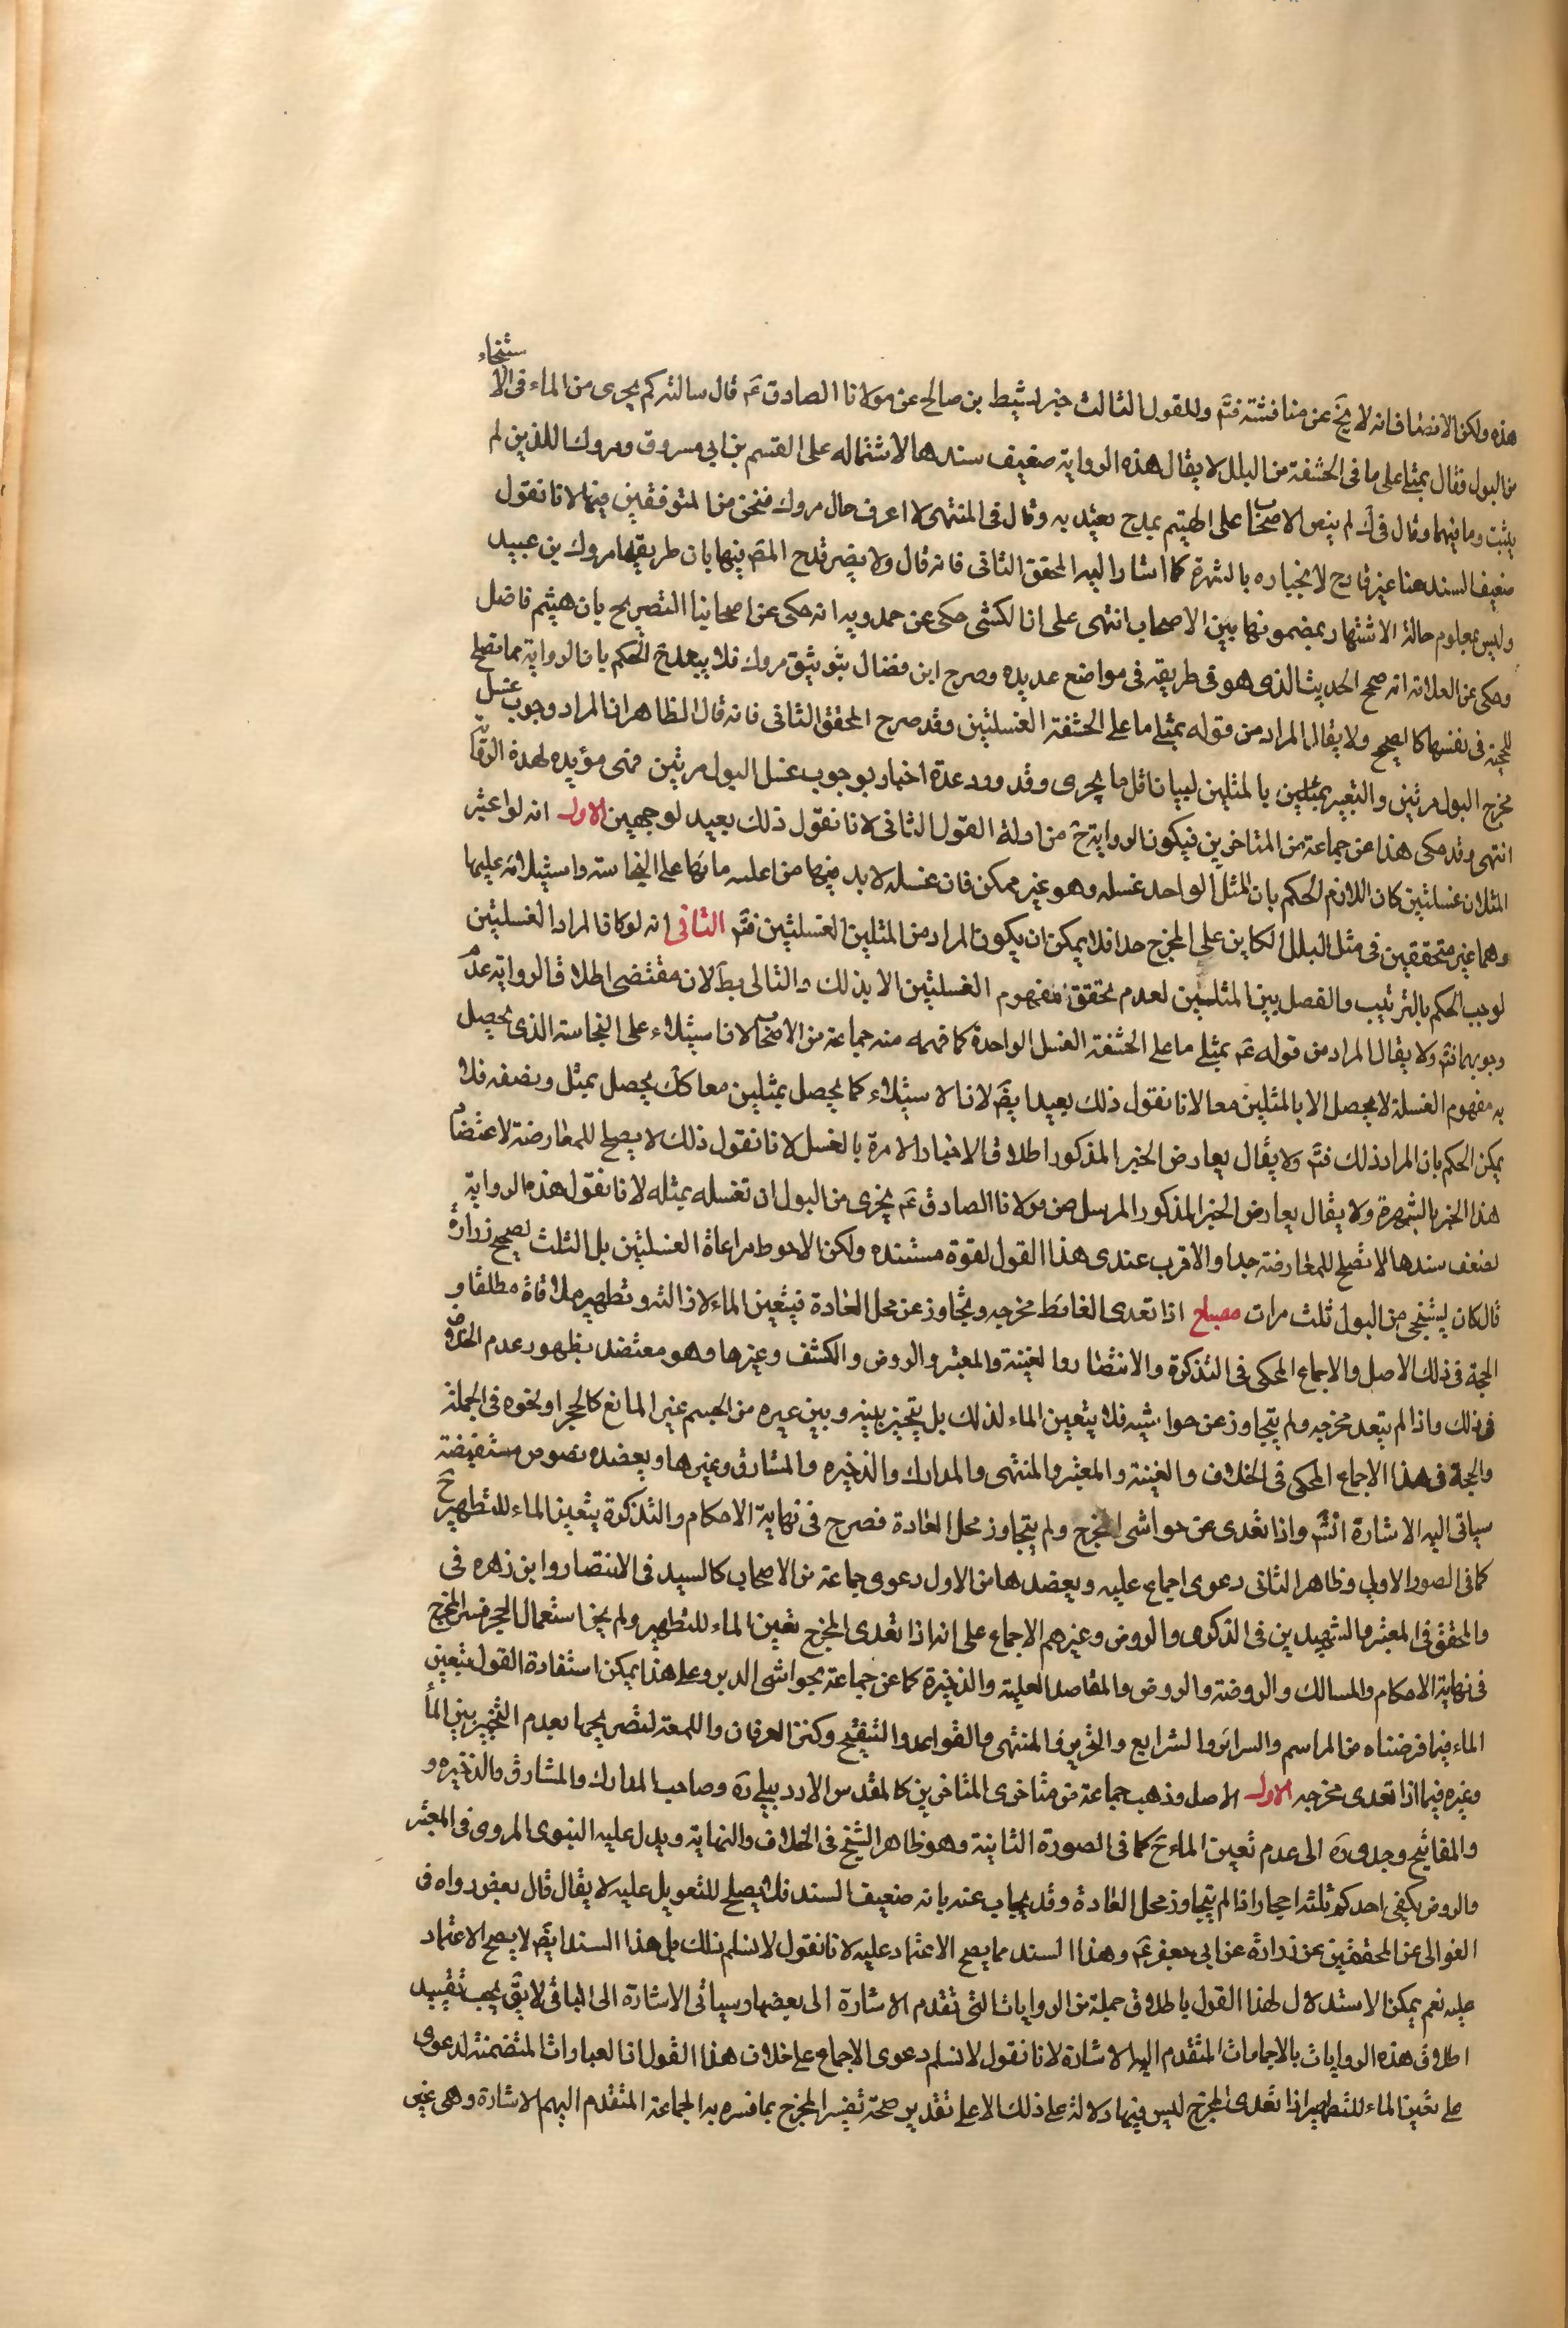 هذه ولكن الانصاف انه لا يخ عن مناقشة فتم وللقول الثالث خبر نشيط بن صالح عن مولانا الصادق عم قال سالته كم يجزى من الماء فى الاستنجاء
من البول فقال بمثلى على ما فى الحشفة من البلل لا يقال هذه الرواية ضعيف سندها لاشتماله على القسم بن ابى مسروق ومروك اللذين لم
يثبت وما فيهما وقال فى ك لم ينص الاصحاب على الهيثم بمدح يعتد به وقال فى المنتهى لا اعرف حال مروك فنحن من المتوقفين فيها لانا نقول
ضعيف السند هنا غير قادح لانجباره بالشهرة كما اشار اليه المحقق الثانى فانه قال ولا يضر قدح المص فيها بان طريقها مروك بن عبيد
وليس بمعلوم حاله الاشتهار بمضمونها بين الاصحاب انتهى على ان الكشى حكى عن حمدويه انه حكى عن اصحابنا التصريح بان هيثم فاضل
وحكى عن العلامة انه صحح الحديث الذى هو فى طريقه فى مواضع عديده وصرح ابن فضال بتوثيق مروك فلا يبعد ح الحكم بان الرواية مما تصلح
للحجة فى نفسها كالصحيح ولا يقال المراد من قوله بمثلى ما على الحشفة الغسلتين وقد صرح المحقق الثانى فانه قال الظاهر ان المراد وجوب غسل
مخرج البول مرتين والتعبير بمثلين بالمثلين لبيان اقل ما يجزى وقد ورد عدة اخبار بوجوب غسل البول مرتين فهى مؤيده لهذة الرواية
انتهى وقد حكى هذا عن جماعة من المتاخرين فيكون الرواية ح من ادلة القول الثانى لانا نقول ذلك بعيد لوجهين الاول انه لو اعتبر
المثلان غسلتين كان اللازم الحكم بان المثل الواحد غسله وهو غير ممكن فان غسله لا بد فيها من اعلى مائها على النجاسة واستيلائه عليها
وهما غير متحققين فى مثل البلل الكاين على المخرج حدا فلا يمكن ان يكون المراد من المثلين الغسلتين فتم الثانى انه لو كان المراد الغسلتين
لوجب الحكم بالترتيب والفصل بين المثلين لعدم تحقق مفهوم الغسلتين الا بذلك والتالى بط لان مقتضى اطلاق الرواية عدم
وجوبهما فتم ولا يقال المراد من قوله عم بمثلى ما على الحشفة الغسل الواحدة كما فهمه منه جماعة من الاصحاب لان استيلاء على النجاسة الذى يحصل
به مفهوم الغسلة لا يحصل الا بالمثلين معا لانا نقول ذلك بعيد ايض لان الاستيلاء كما يحصل بمثلين معا كك يحصل بمثل ونصفه فلا
يمكن الحكم بان المراد ذلك فتم ولا يقال يعارض الخبر المذكور اطلاق الاخبار الامرة بالغسل لانا نقول ذلك لا يصلح للمعارضة لاعتضاد
هذا الخبر بالشهرة ولا يقال يعارض الخبر المذكور المرسل عن مولانا الصادق عم يجزى من البول ان تغسله بمثله لانا نقول هذه الرواية
لضعف سندها لا تصلح للمعارضة جدا والاقرب عندى هذا القول لقوة مستنده ولكن الاحوط مراعاة الغسلتين بل الثلث لصحيح زرارة
قال كان يستنجى من البول ثلث مرات مصباح اذا تعدى الغائط مخرجه وتجاوز عن محل العادة فيتعين الماء لازالته وتطهير ملاقاة مطلقا و
الحجة فى ذلك الاصل والاجماع المحكى فى التذكرة والانتصار والغنية والمعتبر والروض والكشف وغيرها وهو معتضد بظهور عدم الخلاف
فى ذلك واذا لم يتعد مخرجه ولم يتجاوز عن حواشيه فلا يتعين الماء لذلك بل يتخير بينه وبين غيره من الجسم غير المانع كالحجر او نحوه فى الجملة
والحجة فى هذا الاجماع المحكى فى الخلاف والغنية والمعتبر والمنتهى والمدارك والذخيره والمشارق وغيرها ويعضده نصوص مستفيضة
سياتى اليه الاشارة انشم واذا تعدى عن حواشى المخرج ولم يتجاوز محل العادة فصرح فى نهاية الاحكام والتذكرة بتعين الماء للتطهير ح
كما فى الصورة الاولى وظاهر الثانى دعوى اجماع عليه ويعضد ها من الاول دعوى جماعة من الاصحاب كالسيد فى الانتصار وابن زهره فى
والمحقق فى المعتبر والشهيدين فى الذكرى والروض وغيرهم الاجماع على انه اذا تعدى المخرج تعين الماء للتطهير ولم يجز استعمال الحجر فسر المخرج
فى نهاية الاحكام والمسالك والروضة والروض والمقاصد العلية والذخيرة كما عن جماعة بحواشى الدبر وعلى هذا يمكن استفادة القول بتعين
الماء فيما فرضناه من المراسم والسرائر والشرايع والتحرير والمنتهى والقواعد والتنقيح وكنز العرفان واللمعة لتصريحها بعدم التخيير بين الماء
وغيره فيما اذا تعدى مخرجه الاول الاصل وذهب جماعة من متاخرى المتاخرين كالمقدس الاردبيلى ره وصاحب المدارك والمشارق والذخيره و
والمفاتيح وجدى ره الى عدم تعين الماء ح كما فى الصورة الثانية وهو ظاهر الشيخ فى الخلاف والنهاية ويدل عليه النبوى المروى فى المعتبر
والروض يكفى احدكم ثلثة احجار اذا لم يتجاوز محل العادة وقد يجاب عنه بانه ضعيف السند فلا يصلح للتعويل عليه لا يقال قال بعض رواه فى
الغوالى عن المحققين عن زرارة عن ابى جعفر عم وهذا السند مما يصح الاعتماد عليه لانا نقول لا نسلم ذلك بل هذا السند ايض لا يصح الاعتماد
عليه نعم يمكن الاستدلال لهذا القول باطلاق جملة من الروايات التى تقدم الاشارة الى بعضها وسياتى الاشارة الى الباقى لا يق يجب تقييد
اطلاق هذه الروايات بالاجماعات المتقدم اليها الاشارة لانا نقول لا نسلم دعوى الاجماع على خلاف هذا القول اذ العبارات المتضمنة لدعوى
على تعين الماء للتطهير اذا تعدى المخرج ليس فيها دلالة على ذلك الا على تقدير صحة تفسير المخرج بما فسره به الجماعة المتقدم اليهم الاشارة وهى غير